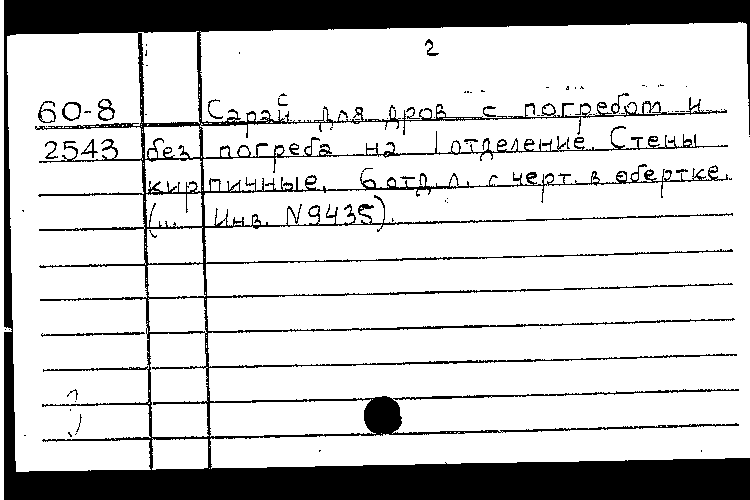 2
60-8 Сарай для дров с погребом и
2543 без погреба на 1 отделение. Стены
кирпичные. 6 отд. л. с черт. в обертке.
(... Инв. N9435).